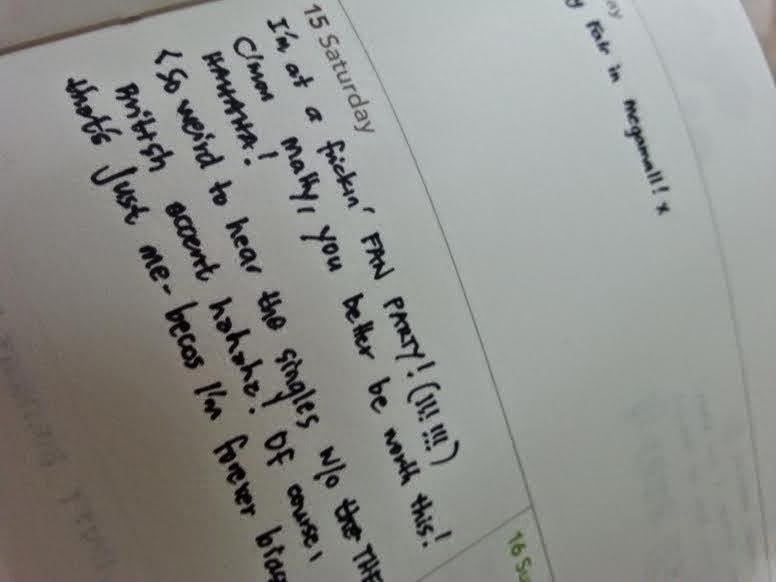 Fair in megamall! x
15 Saturday
I'm at a frickin' FAN PARTY! (!!! !!!)
C'mon Matty, you better be worth this!
HAHAHA!
(So weird to hear the singles w/o the THE
British accent hahaha! Of course,
that's just me - becos I'm forever
16 Su